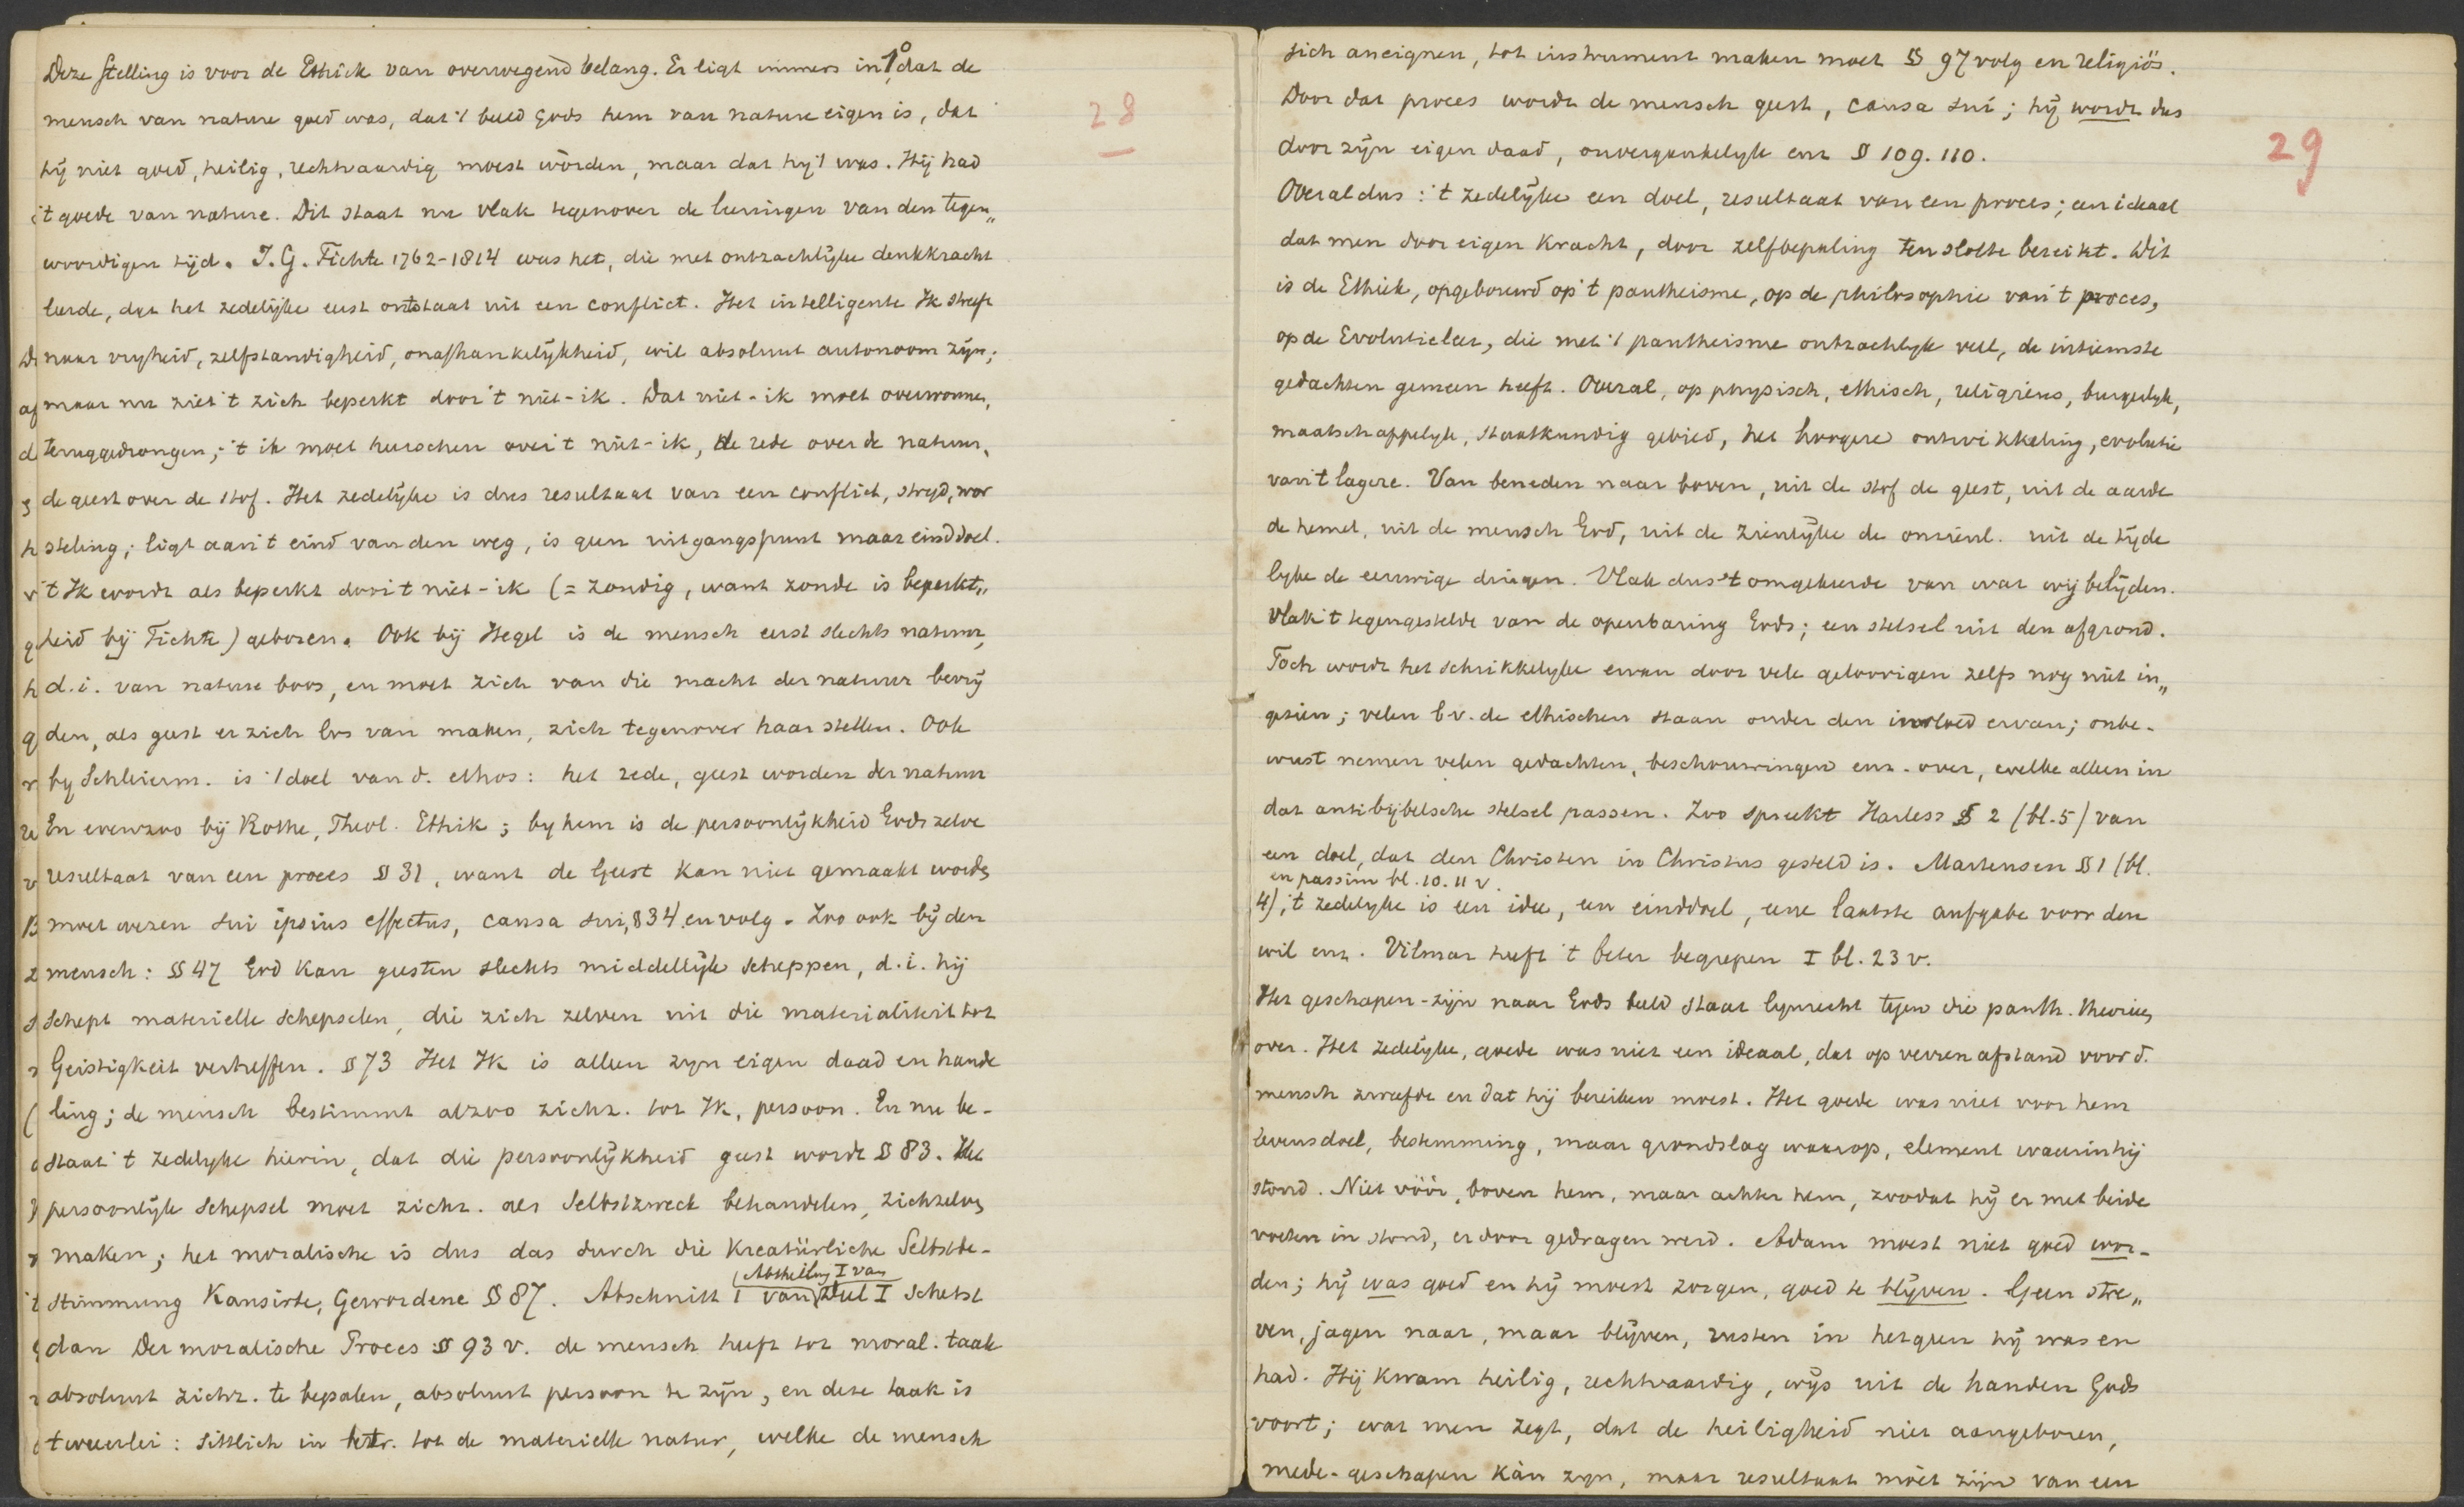 Deze stelling is voor de Ethick van overwegend belang. Er ligt immers in 1o, dat de
mensch van nature goed was, dat 't beeld Gods hem van nature eigen is, dat
hij niet goed, heilig, rechtvaardig moest wòrden, maar dat hij 't was. Hij had
't goede van nature. Dit staat nu vlak tegenover de leeringen van den tegen„
woordigen tijd. J.G. Fichte 1762-1814 was het, die met ontzachlijke denkkracht
leerde, dat het zedelijke eerst ontstaat uit een conflict. Het intelligente Ik streeft
naar vrijheid, zelfstandigheid, onafhankelijkheid, wil absoluut autonoom zijn;
maar nu ziet 't zich beperkt door 't niet-ik. Dat niet-ik moet overwonnen,
teruggedrongen; 't ik moet heerschen over 't niet-ik, de rede over de natuur,
de geest over de stof. Het zedelijke is dus resultaat van een conflict, strijd, wor
steling; ligt aan 't eind van den weg, is geen uitgangspunt maar einddoel.
't Ik wordt als beperkt door 't niet-ik (= zondig, want zonde is beperkt„
heid bij Fichte) geboren. Ook bij Hegel is de mensch eerst slechts natuur,
d.i. van nature boos, en moet zich van die macht der natuur bevrij
den, als geest er zich los van maken, zich tegenover haar stellen. Ook
bij Schleierm. is 't doel van d. ethos: het rede, geest worden der natuur
En evenzoo bij Rothe, Theol. Ethik; by hem is de persoonlijkheid Gods zelve
resultaat van een proces § 31, want de Geest kan niet gemaakt worden,
moet wezen sui ipsius effectus, causa sui, § 34 en volg. Zoo ook bij den
mensch: § 47 God kan geesten slechts middellijk scheppen, d.i. hij
schept materielle schepselen, die zich zelven uit die materialiteit tot
Geistigkeit verheffen. § 73 Het Ik is alleen zyn eigen daad en hande
ling; de mensch bestimmt alzoo zichz. tot Ik, persoon. En nu be-
staat 't zedelyke hierin, dat die persoonlijkheid geest wordt § 83. Het
persoonlijk schepsel moet zichz. als Selbstzweck behandelen, zichzelven
maken; het moralische is dus das durch die Kreatürliche Selbstbe-
stimmung Kausirte, Gewordene § 87. Abschnitt 1 van Abtheilung I van Deel I schetst
dan Der moralische Proces § 93 v. de mensch heeft tot moral. taak
absoluut zichz. te bepalen, absoluut persoon te zijn, en deze taak is
tweeërlei: sittlich in betr. tot de materielle natur, welke de mensch
28
zich aneignen, tot instrument maken moet § 97 volg en religiös.
Door dat proces wordt de mensch geest, causa sui; hij wordt dus
door zijn eigen daad, onvergankelyk enz § 109. 110.
Overal dus: 't zedelijke een doel, resultaat van een proces; een ideaal
dat men door eigen kracht, door zelfbepaling ten slotte bereikt. Dit
is de Ethiek, opgebouwd op 't pantheisme, op de philosophie van 't proces,
op de Evolutieleer, die met 't pantheisme ontzachlyk veel, de intiemste
gedachten gemeen heeft. Overal, op physisch, ethisch, religieus, burgerlyk,
maatschappelyk, staatkundig gebied, het hoogere ontwikkeling, evolutie
van 't lagere. Van beneden naar boven, uit de stof de geest, uit de aarde
de hemel, uit de mensch God, uit de zienlijke de onzienl. uit de tijde
lyke de eeuwige dingen. Vlak dus 't omgekeerde van wat wij belijden.
Vlak 't tegengestelde van de openbaring Gods; een stelsel uit den afgrond.
Toch wordt het schrikkelyke ervan door vele geloovigen zelfs nog niet in„
gezien; velen bv. de ethischen staan onder den invloed ervan; onbe-
wust nemen velen gedachten, beschouwingen enz. over, welke alleen in
dat antibijbelsche stelsel passen. Zoo spreekt Harless § 2 (bl. 5) van
een doel, dat den Christen in Christus gesteld is. Martensen § 1 (bl.
en passim bl. 10. 11 v.
4), 't zedelyke is een idee, een einddoel, eene laatste aufgabe voor den
wil enz. Vilmar heeft 't beter begrepen I bl. 23 v.
Het geschapen-zijn naar Gods beeld staat lynrecht tegen die panth. theorieen
over. Het zedelyke, goede was niet een ideaal, dat op verren afstand voor d.
mensch zweefde en dat hij bereiken moest. Het goede was niet voor hem
levensdoel, bestemming, maar grondslag waarop, element waarin hij
stond. Niet vóór, boven hem, maar achter hem, zoodat hij er met beide
voeten in stond, er door gedragen werd. Adam moest niet goed wor-
den; hij was goed en hij moest zorgen, goed te blijven. Geen stre„
ven, jagen naar, maar blijven, rusten in hetgeen hij was en
had. Hij kwam heilig, rechtvaardig, wijs uit de handen Gods
voort; wat men zegt, dat de heiligheid niet aangeboren,
mede-geschapen kàn zyn, maar resultaat mòet zijn van een
29